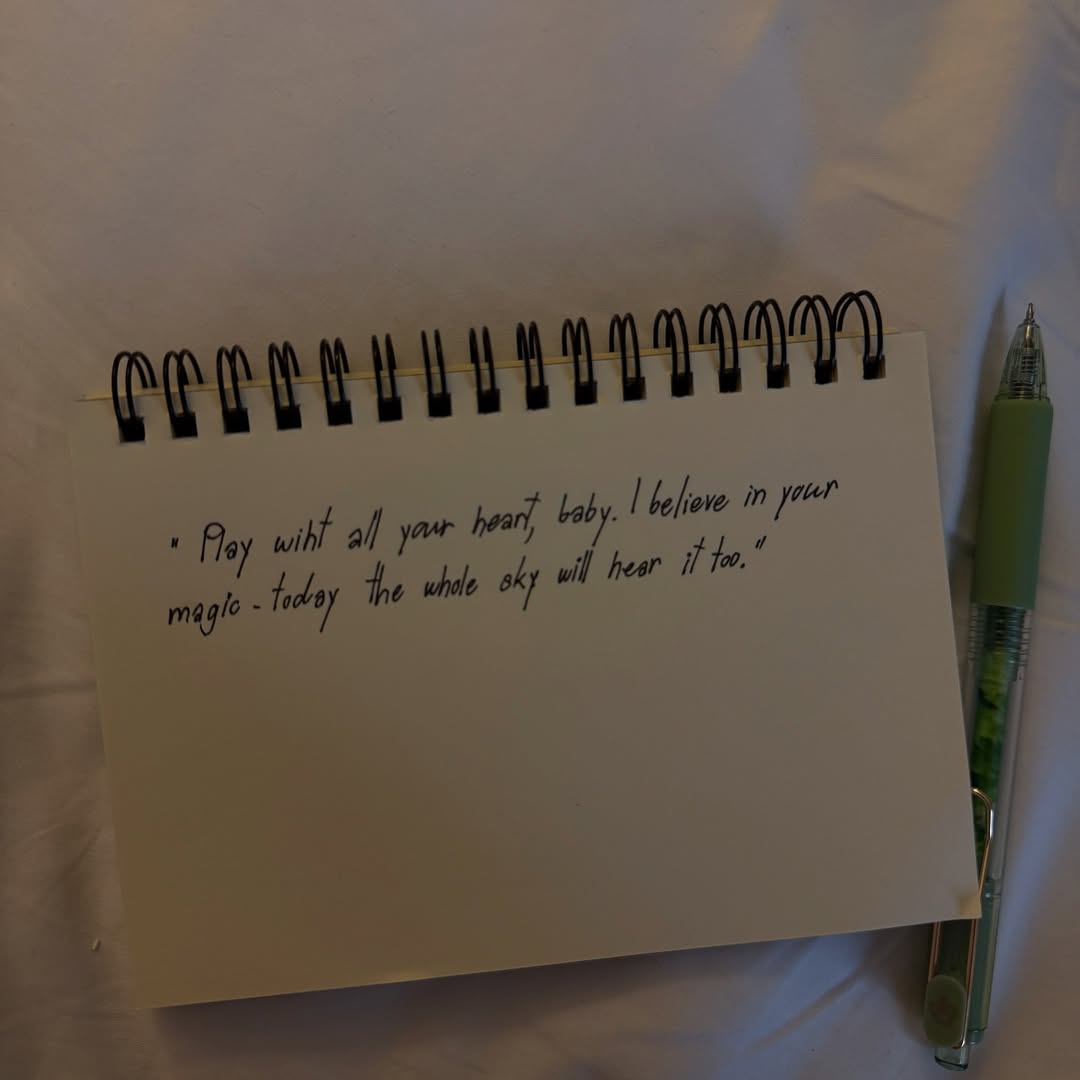 " Play wiht all your heart, baby. I believe in your
magic - today the whole sky will hear it too."